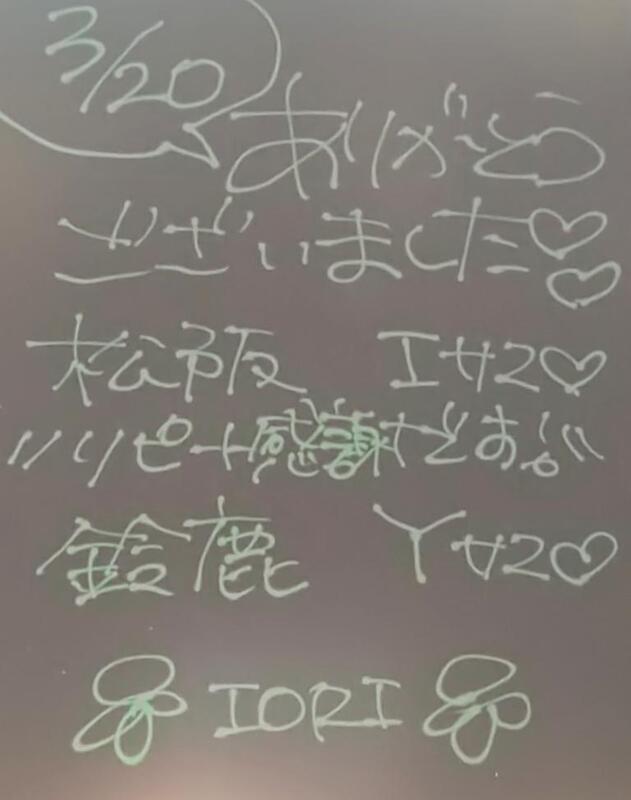 3/20
ありがとう
ございました♡♡
松阪 Iサン♡
〃リピート感謝だお〃
鈴鹿 Yサン♡
IORI